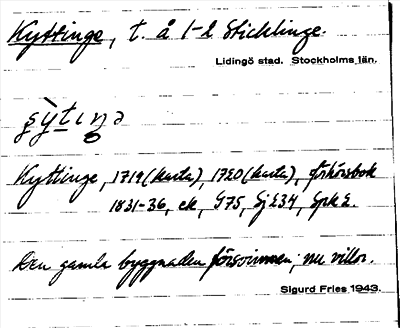 Kyttinge, t. å 1-2 Sticklinge.
Lidingö stad. Stockholms län.
Kyttinge, 1719 (karta), 1720 (karta), förhörsbok
1831-36, ek, G75, Sj E34, Gpk E.
Den gamla byggnaden försvunnen; nu villor.
Sigurd Fries 1943.